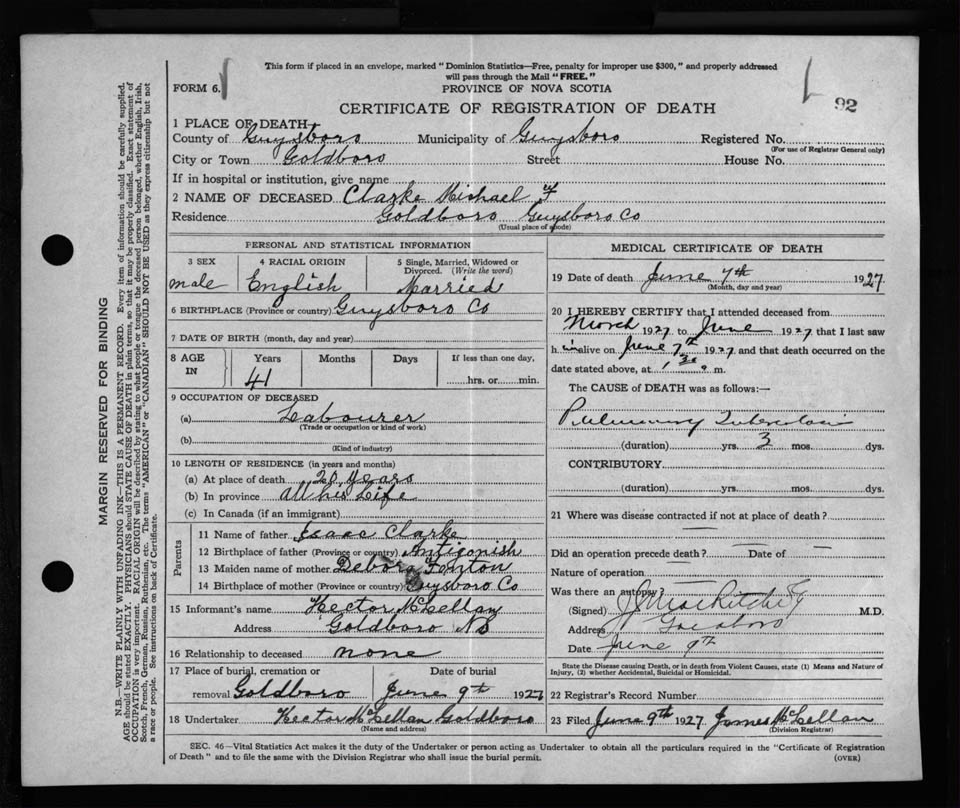 This form if placed in an envelope, marked "Dominion Statistics—Free, penalty for improper use $300," and properly addressed
will pass through the Mail "FREE."
FORM 6.
PROVINCE OF NOVA SCOTIA
92
CERTIFICATE OF REGISTRATION OF DEATH
1 PLACE OF DEATH
County of Guysboro Municipality of Guysboro Registered No.
(For use of Registrar General only)
City or Town Goldboro Street House No.
If in hospital or institution, give name
2 NAME OF DECEASED Clarke Michael
Residence Goldboro Guysboro Co
(Usual place of abode)
PERSONAL AND STATISTICAL INFORMATION
3 SEX 4 RACIAL ORIGIN 5 Single, Married, Widowed or
Divorced. (Write the word)
male English Married
6 BIRTHPLACE (Province or country) Guysboro Co
7 DATE OF BIRTH (month, day and year)
8 AGE IN Years Months Days If less than one day,
41 hrs. or min.
9 OCCUPATION OF DECEASED
(a) Labourer
(Trade or occupation or kind of work)
(b)
(Kind of industry)
10 LENGTH OF RESIDENCE (in years and months)
(a) At place of death years
(b) In province all his Life
(c) In Canada (if an immigrant)
Parents
11 Name of father Isaac Clarke
12 Birthplace of father (Province or country) Antigonish
13 Maiden name of mother Debora Fenton
14 Birthplace of mother (Province or country) Guysboro Co
15 Informant's name Hector McLellan
Address Goldboro NS
16 Relationship to deceased none
17 Place of burial, cremation or Date of burial
removal Goldboro June 9th 1927
18 Undertaker Hector McLellan Goldboro
(Name and address)
MEDICAL CERTIFICATE OF DEATH
19 Date of death June 7th 1927
(Month, day and year)
20 I HEREBY CERTIFY that I attended deceased from
March 1927 to June 1927 that I last saw
h im alive on June 7th 1927 and that death occurred on the
date stated above, at 1.30 m.
The CAUSE of DEATH was as follows:—
Pulmonary Tuberculosis
(duration) yrs. 3 mos. dys.
CONTRIBUTORY
(duration) yrs. mos. dys.
21 Where was disease contracted if not at place of death?
Did an operation precede death? Date of
Nature of operation
Was there an autopsy?
(Signed) M.D.
Address
Date June 9th
State the Disease causing Death, or in death from Violent Causes, state (1) Means and Nature of
Injury, (2) whether Accidental, Suicidal or Homicidal.
22 Registrar's Record Number
23 Filed June 9th 1927 James McLellan
(Division Registrar)
SEC. 46—Vital Statistics Act makes it the duty of the Undertaker or person acting as Undertaker to obtain all the particulars required in the "Certificate of Registration
of Death" and to file the same with the Division Registrar who shall issue the burial permit.
(OVER)
MARGIN RESERVED FOR BINDING
N.B.—WRITE PLAINLY WITH UNFADING INK—THIS IS A PERMANENT RECORD. Every item of information should be carefully supplied.
AGE should be stated EXACTLY. PHYSICIANS should STATE CAUSE OF DEATH in plain terms, so that it may be properly classified. Exact statement of
OCCUPATION is very important. RACIAL ORIGIN will be described by stating to what people or tongue the deceased person belonged, whether English, Irish,
Scotch, French, German, Russian, Ruthenian, etc. The terms "AMERICAN" or "CANADIAN" SHOULD NOT BE USED as they express citizenship but not
a race or people. See instructions on back of Certificate.